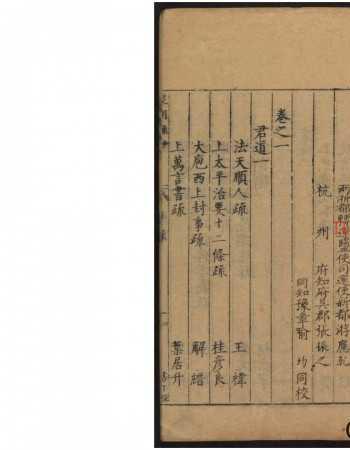 兩浙都轉運鹽使司運使新都蔣應乾
杭州 府知府吳郡張振之
同知豫章喻均同校
卷之一
君道一
法天順人疏 王禕
上太平治要十二條疏 桂彥良
大庖西上封事疏 解縉
上萬言書疏 葉居升